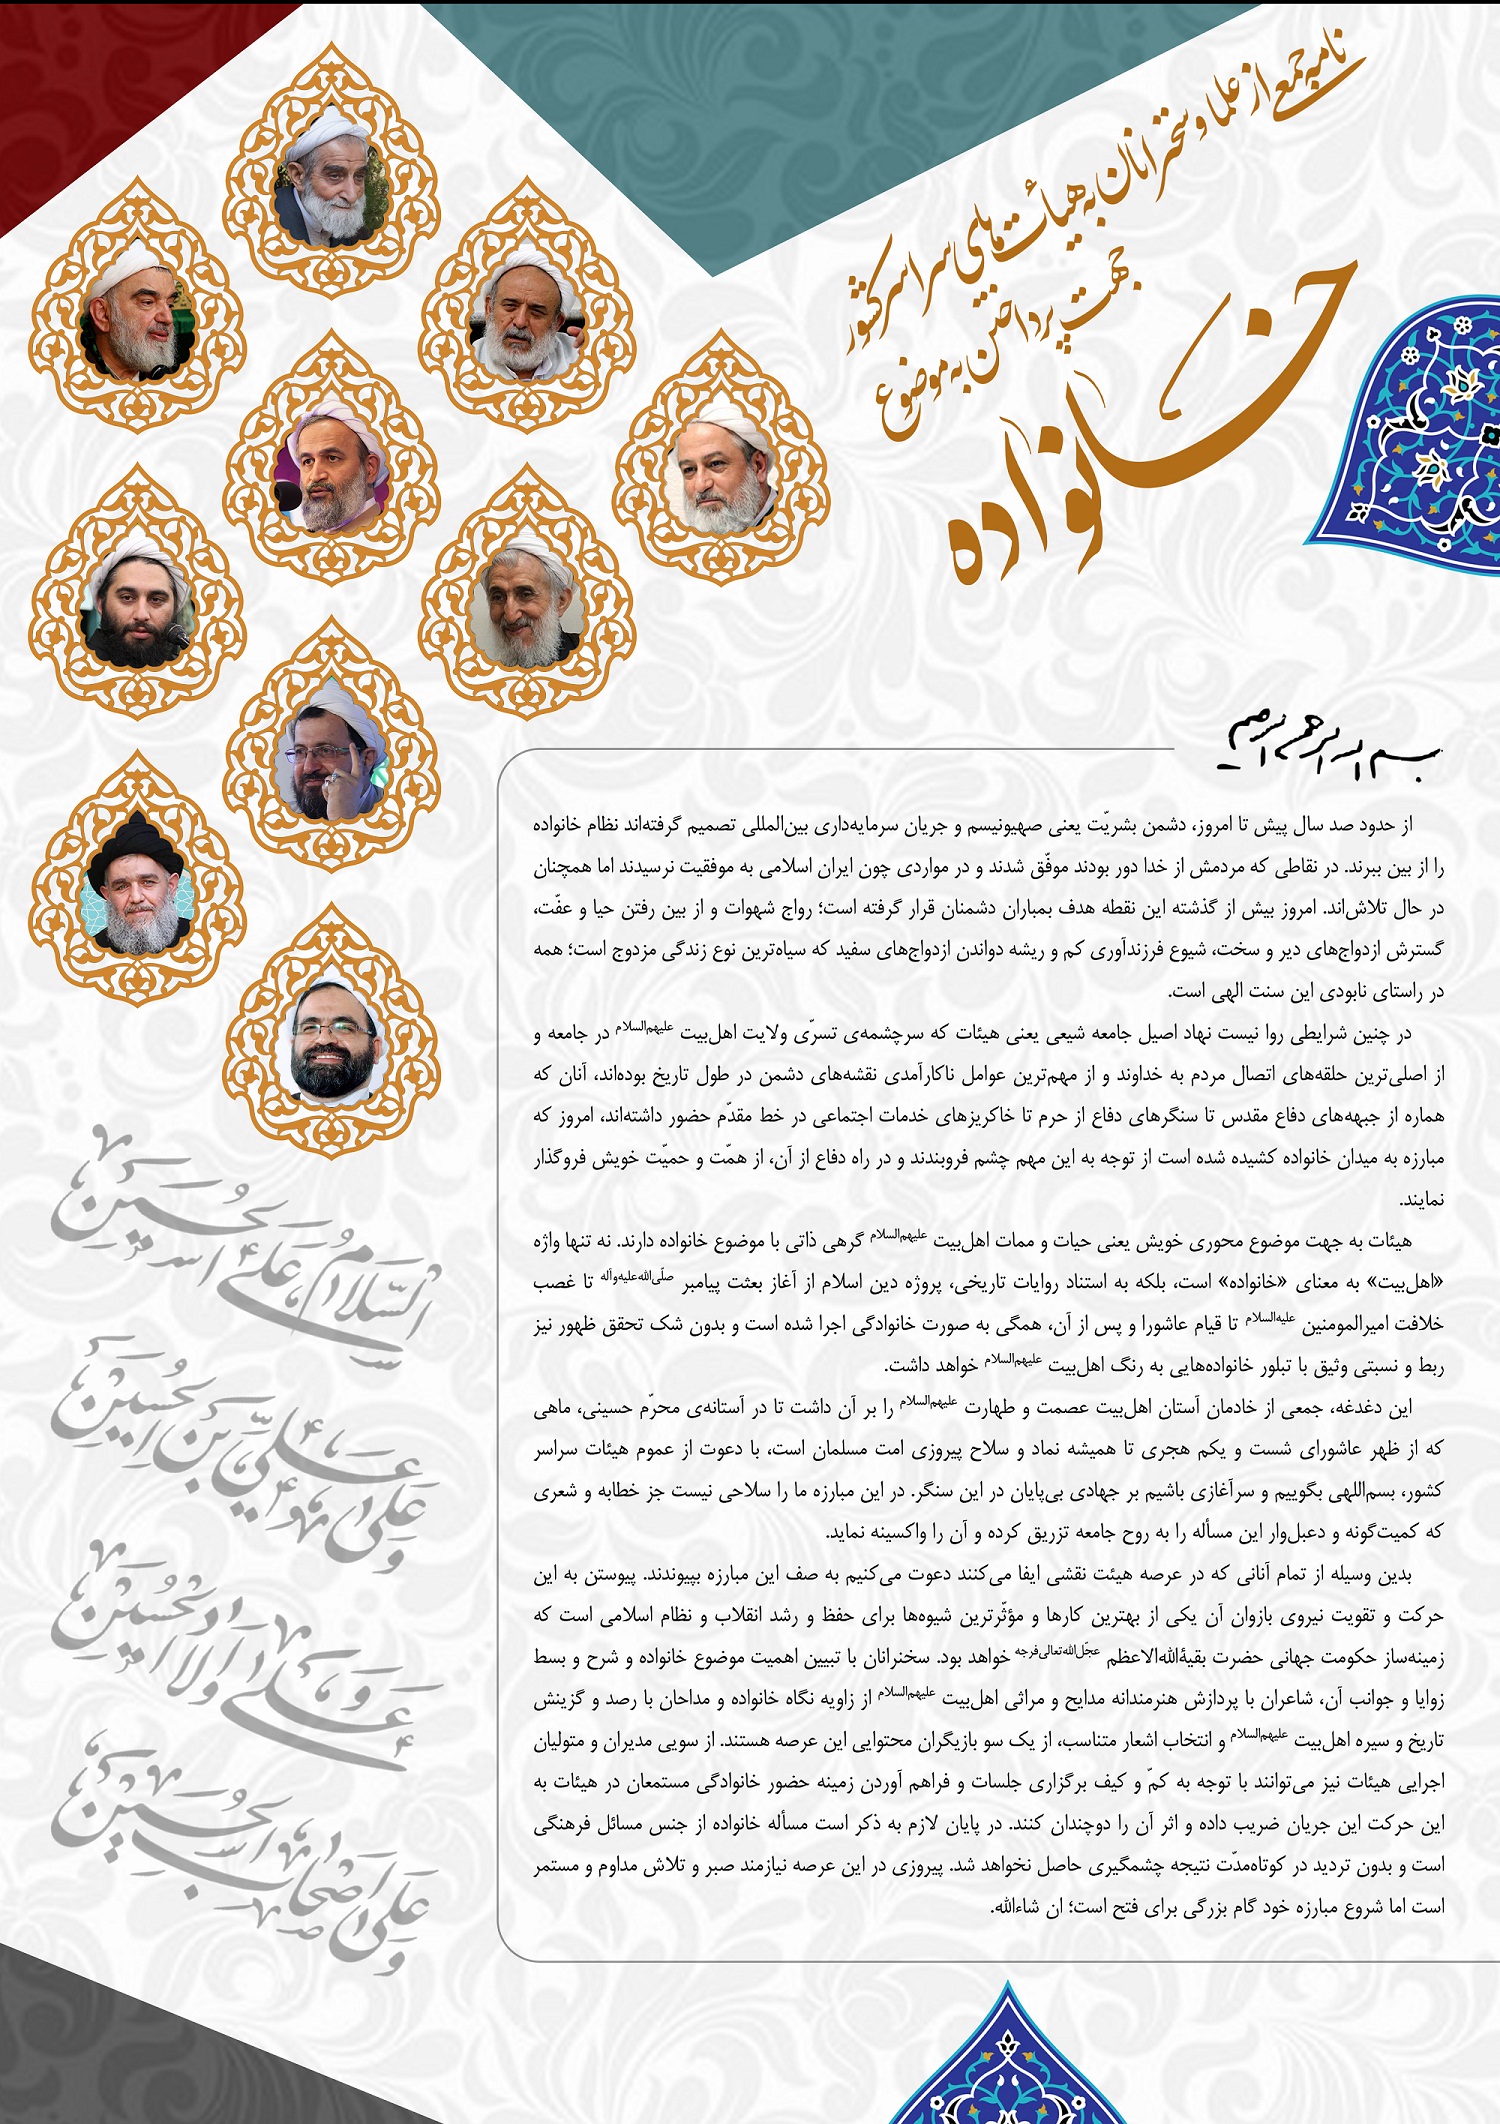 نامه جمعی از علما و سخنرانان به هیأت‌های سراسر کشور
جهت پرداختن به موضوع
خانواده
بسم الله الرحمن الرحیم
از حدود صد سال پیش تا امروز، دشمن بشریّت یعنی صهیونیسم و جریان سرمایه‌داری بین‌المللی تصمیم گرفته‌اند نظام خانواده
را از بین ببرند. در نقاطی که مردمش از خدا دور بودند موفّق شدند و در مواردی چون ایران اسلامی به موفقیت نرسیدند اما همچنان
در حال تلاش‌اند. امروز بیش از گذشته این نقطه هدف بمباران دشمنان قرار گرفته است؛ رواج شهوات و از بین رفتن حیا و عفّت،
گسترش ازدواج‌های دیر و سخت، شیوع فرزندآوری کم و ریشه دواندن ازدواج‌های سفید که سیاه‌ترین نوع زندگی مزدوج است؛ همه
در راستای نابودی این سنت الهی است.
در چنین شرایطی روا نیست نهاد اصیل جامعه شیعی یعنی هیئات که سرچشمه‌ی تسرّی ولایت اهل‌بیت علیهم‌السلام در جامعه و
از اصلی‌ترین حلقه‌های اتصال مردم به خداوند و از مهم‌ترین عوامل ناکارآمدی نقشه‌های دشمن در طول تاریخ بوده‌اند، آنان که
هماره از جبهه‌های دفاع مقدس تا سنگرهای دفاع از حرم تا خاکریزهای خدمات اجتماعی در خط مقدّم حضور داشته‌اند، امروز که
مبارزه به میدان خانواده کشیده شده است از توجه به این مهم چشم فروبندند و در راه دفاع از آن، از همّت و حمیّت خویش فروگذار
نمایند.
هیئات به جهت موضوع محوری خویش یعنی حیات و ممات اهل‌بیت علیهم‌السلام گرهی ذاتی با موضوع خانواده دارند. نه تنها واژه
«اهل‌بیت» به معنای «خانواده» است، بلکه به استناد روایات تاریخی، پروژه دین اسلام از آغاز بعثت پیامبر صلّی‌الله‌علیه‌وآله تا غصب
خلافت امیرالمومنین علیه‌السلام تا قیام عاشورا و پس از آن، همگی به صورت خانوادگی اجرا شده است و بدون شک تحقق ظهور نیز
ربط و نسبتی وثیق با تبلور خانواده‌هایی به رنگ اهل‌بیت علیهم‌السلام خواهد داشت.
این دغدغه، جمعی از خادمان آستان اهل‌بیت عصمت و طهارت علیهم‌السلام را بر آن داشت تا در آستانه‌ی محرّم حسینی، ماهی
که از ظهر عاشورای شست و یکم هجری تا همیشه نماد و سلاح پیروزی امت مسلمان است، با دعوت از عموم هیئات سراسر
کشور، بسم‌اللهی بگوییم و سرآغازی باشیم بر جهادی بی‌پایان در این سنگر. در این مبارزه ما را سلاحی نیست جز خطابه و شعری
که کمیت‌گونه و دعبل‌وار این مسأله را به روح جامعه تزریق کرده و آن را واکسینه نماید.
بدین وسیله از تمام آنانی که در عرصه هیئت نقشی ایفا می‌کنند دعوت می‌کنیم به صف این مبارزه بپیوندند. پیوستن به این
حرکت و تقویت نیروی بازوان آن یکی از بهترین کارها و مؤثّرترین شیوه‌ها برای حفظ و رشد انقلاب و نظام اسلامی است که
زمینه‌ساز حکومت جهانی حضرت بقیةالله‌الاعظم عجّل‌الله‌تعالی‌فرجه خواهد بود. سخنرانان با تبیین اهمیت موضوع خانواده و شرح و بسط
زوایا و جوانب آن، شاعران با پردازش هنرمندانه مدایح و مراثی اهل‌بیت علیهم‌السلام از زاویه نگاه خانواده و مداحان با رصد و گزینش
تاریخ و سیره اهل‌بیت علیهم‌السلام و انتخاب اشعار متناسب، از یک سو بازیگران محتوایی این عرصه هستند. از سویی مدیران و متولیان
اجرایی هیئات نیز می‌توانند با توجه به کمّ و کیف برگزاری جلسات و فراهم آوردن زمینه حضور خانوادگی مستمعان در هیئات به
این حرکت این جریان ضریب داده و اثر آن را دوچندان کنند. در پایان لازم به ذکر است مسأله خانواده از جنس مسائل فرهنگی
است و بدون تردید در کوتاه‌مدّت نتیجه چشمگیری حاصل نخواهد شد. پیروزی در این عرصه نیازمند صبر و تلاش مداوم و مستمر
است اما شروع مبارزه خود گام بزرگی برای فتح است؛ ان شاءالله.
السَّلامُ عَلَی الحُسَین
وَ عَلی عَلیِّ بنِ الحُسَین
وَ عَلی اَولادِ الحُسَین
وَ عَلی اَصحابِ الحُسَین